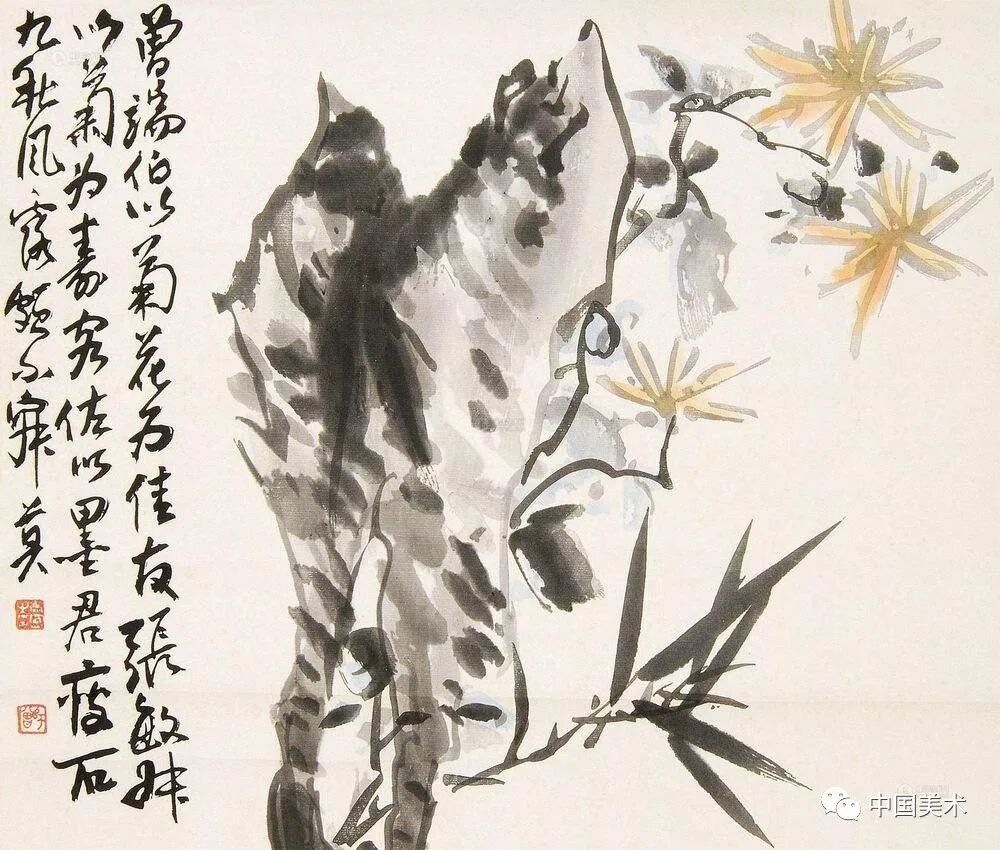 曾端伯以菊花为佳友張敏叔
以菊为寿客佐以墨君痩石
九秋风露頗不寂莫
中国美术